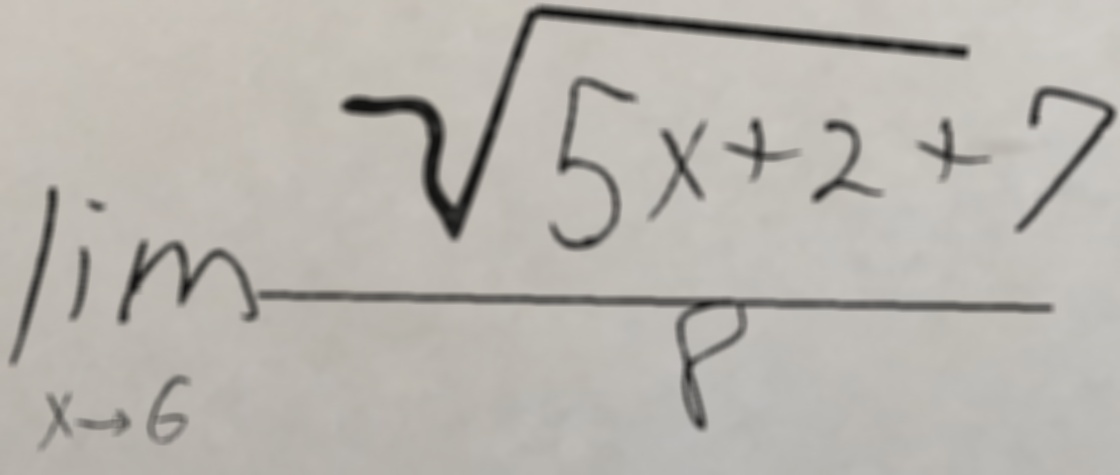 lim x→6 (√(5x+2) + 7) / 8